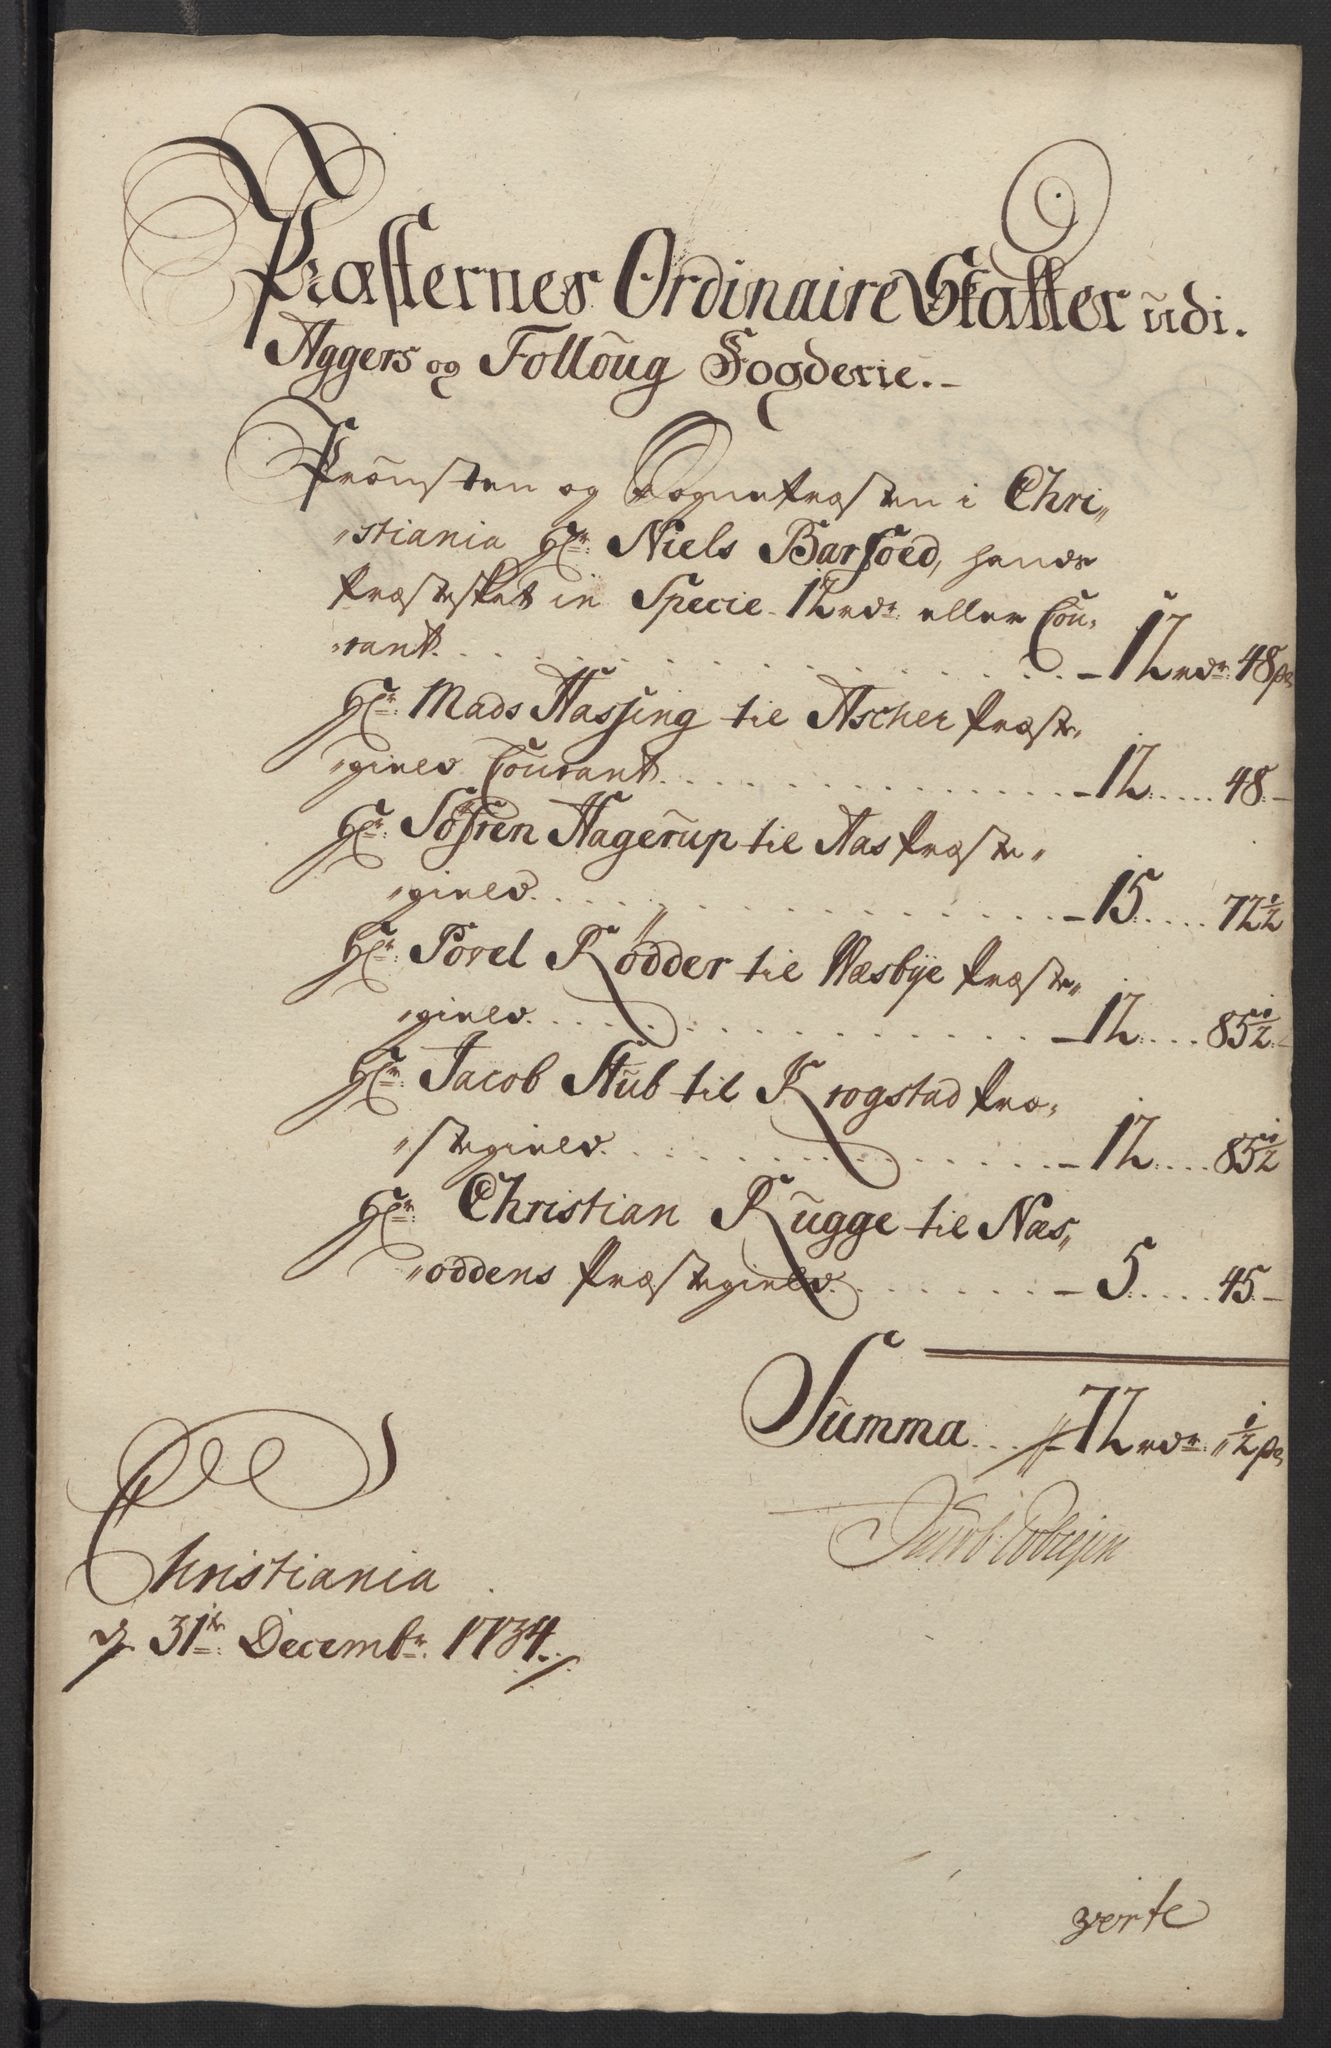 Præsternes Ordinaire Skatter udi.
Aggers og Follõug Fogderie.-
Prousten og Sognepræsten i Chri„
„stiania Hr: Niels Barsoed, hands
Præsteskat in Specie 12 rdr eller Cou„
„rant. . . . . . . . . . . . - 12 rdr: 48 ps
Hr: Mads Hassing til Ascher Præste„
„gield Courant. . . . . . . . . . . . - 12. . . . . 48.-
Hr: Søfren Hagerup til Aas Præste„
„gield. . . . . . . . . . . . - 15. . . . . 72½
Hr: Povel Rødder til Næsbye Præste„
„gield. . . . . . . . . . . . - 12. . . . 85½.-
Hr: Jacob Stub til Krogstad Præ„
„stegield. . . . . . . . . . . . - 12. . . . 85½
Hr: Christian Rugge til Næs„
„oddens Præstegield. . . . . . . - 5. . . . . 45.-
Summa . . . 72 rdr: „½ ps
Christiania
d. 31te: Decembr: 1734.
verte